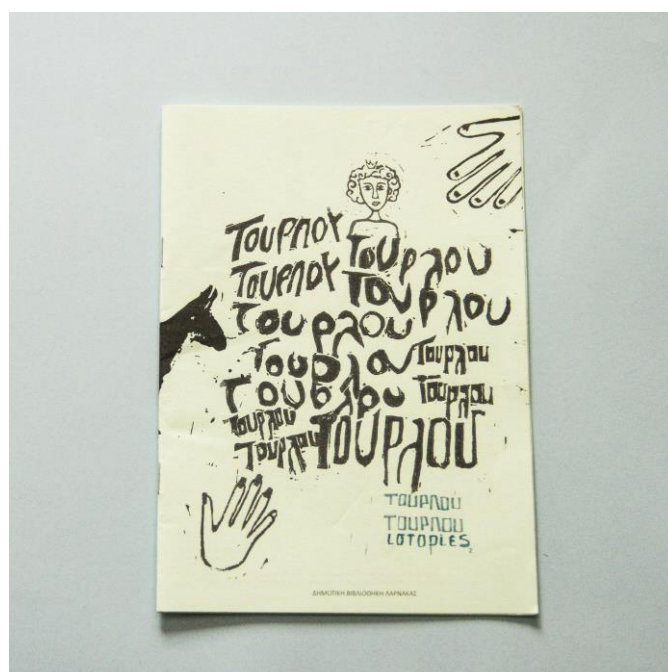 ΤΟΥΡΛΟΥ Τουρλου
ΤΟΥΡΛΟΥ Τουρλου
Τουρλου
Τουρλου Τουρλου
Τουρλου Τουρλου
Τουρλου
Τουρλου Τουρλού
ΤΟΥΡΛΟΥ
ΤΟΥΡΛΟΥ
ΙστορίΕS
ΔΗΜΟΤΙΚΗ ΒΙΒΛΙΟΘΗΚΗ ΛΑΡΝΑΚΑΣ